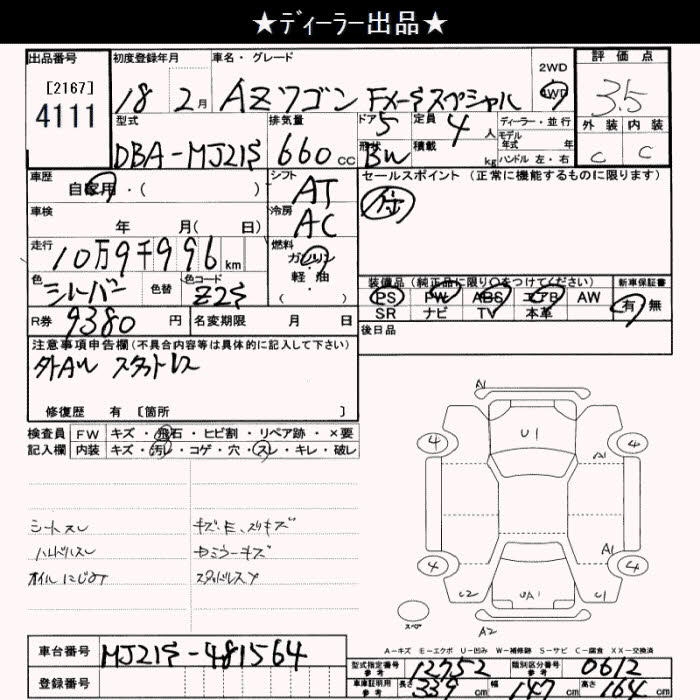 ★ディーラー出品★
出品番号
[2167]
4111
初度登録年月
18 2月
車名・グレード
AZワゴン FX-Sスペシャル
2WD
4WD
評価点
3.5
外装 内装
C C
型式
DBA-MJ21S
排気量
660 cc
ドア 5
形状 BW
定員 4人
積載 kg
ディーラー・並行
モデル
年式 年
ハンドル 左・右
車歴
自家用・( )
シフト
AT
セールスポイント(正常に機能するものに限ります)
車検
年 月( 日)
冷房
AC
走行
10万9千996 km
燃料
ガソリン
軽・油
( )
色
シルバー
色替
色コード
Z2S
装備品(純正品に限り○をつけてください)
新車保証書
PS PW ABS エアB AW
SR ナビ TV 本革
有 無
R券 9380 円
名変期限 月 日
後日品
注意事項申告欄(不具合内容等は具体的に記入して下さい)
外AW スタットレス
修復歴 有 [箇所 ]
検査員 FW キズ・飛石・ヒビ割・リペア跡・×要
記入欄 内装 キズ・汚れ・コゲ・穴・スレ・キレ・破レ
シートスレ
ハンドルスレ
オイルにじみ
キズ・E、スリキズ
スタッドレスタ
A1
U1
4 4
A1
A1
4 4
C2 UA1 C1
スペア
A2
A-キズ E-エクボ U-凹み W-補修跡 S-サビ C-腐食 XX-交換済
車台番号 MJ21S-481564
登録番号
型式指定番号 参考 12752
類別区分番号 参考 0612
車庫証明用 参考 長さ 339 cm 幅 147 cm 高さ 164 cm